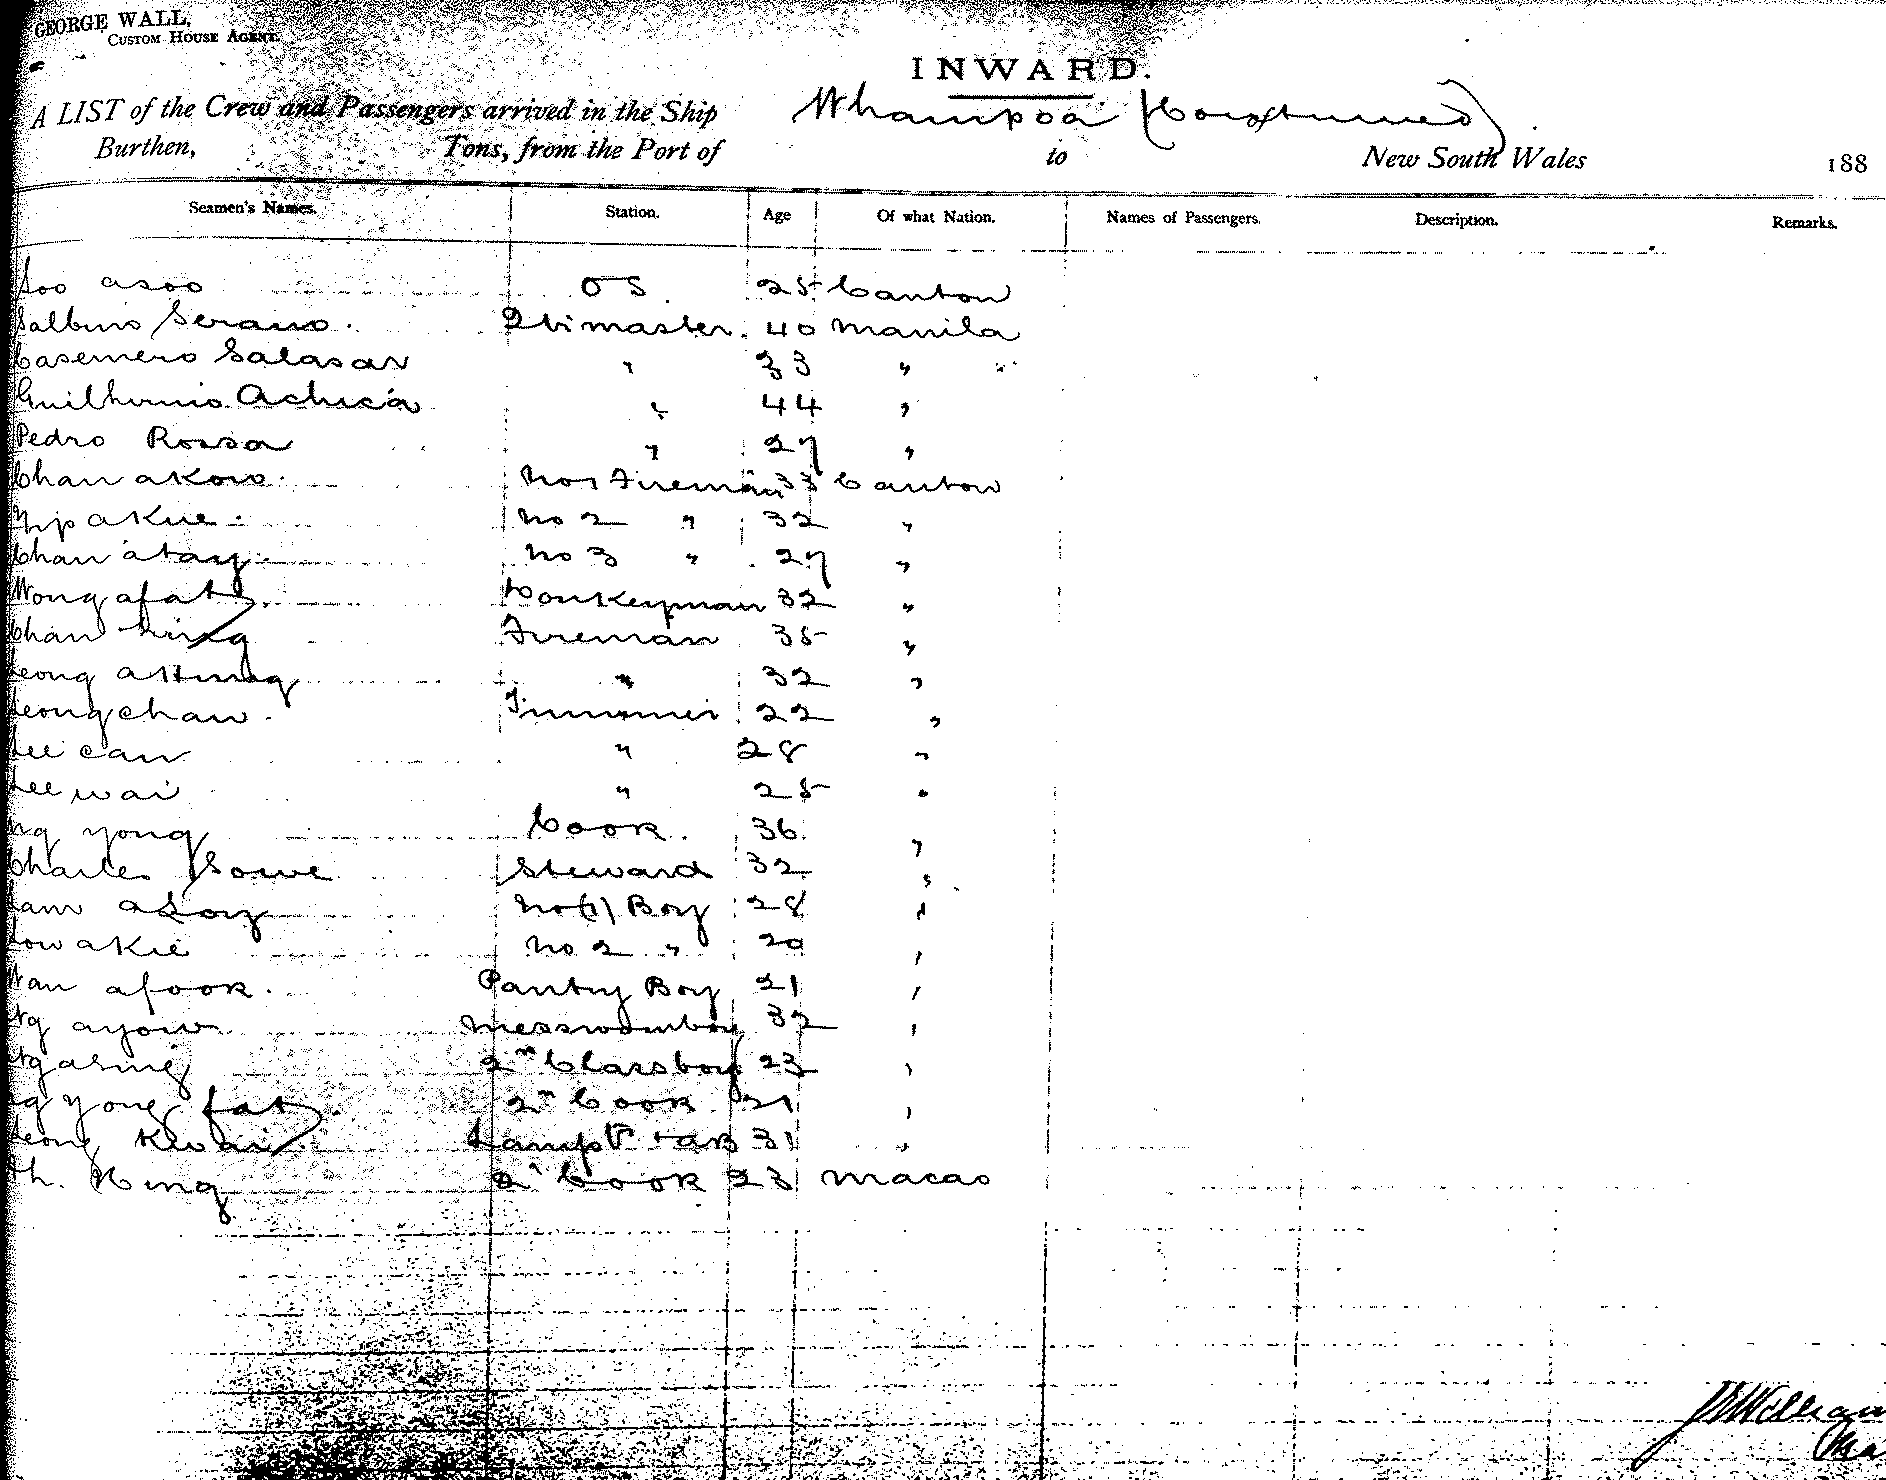 GEORGE WALL,
CUSTOM HOUSE AGENT.
INWARD.
A LIST of the Crew and Passengers arrived in the Ship Whampoa (Continued)
Burthen, Tons, from the Port of to New South Wales 188
Seamen's Names. Station. Age Of what Nation. Names of Passengers. Description. Remarks.
asoo OS 25 Canton
Serano 40 Manila
Casemero Salasar " 33 "
Guilhermo " 44 "
Pedro Rossa " 27 "
Chan akow No 1 Fireman 33 Canton
Yip akue No 2 " 32 "
Chan atay No 3 " 27 "
Wong afat Donkeyman 32 "
Chan Fireman 35 "
Leong " 32 "
Leong chan Trimmer 22 "
Lee can " 28 "
Lee wai " 25 "
Ng yong Cook 36 "
Charles Steward 32 "
No (1) Boy 28 "
akie No 2 " 20 "
afook Pantry Boy 21 "
Ng ayow Messroomboy 32 "
Ng asing 2nd Classboy 23 "
Ng yong fat 2nd Cook 21 "
Leong Kwai 31 "
2nd Cook 23 Macao